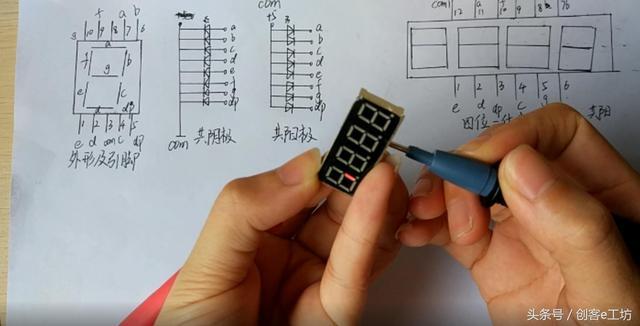 com
+5
f a b
10 9 8 7 6
a
f b
g
e c
d
1 2 3 4 5
e d com c dp
外形及引脚
a
b
c
d
e
f
g
dp
com
共阴极
a
b
c
d
e
f
g
dp
共阳极
com1
12 11 10 9 8
a f
1 2 3 4 5 6
e d dp c g
四位一
共阳
头条号 / 创客e工坊